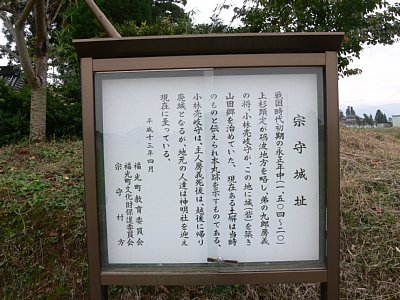 宗守城址
戦国時代初期の永正年中(一、五〇四-二〇)
上杉顕定が砺波地方を略し、弟の九郎房義
の将、小林壱岐守が、この地に城(砦)を築き
山田郷を治めていた。現在ある土塀は当時
のものと伝えられ本丸跡を示すものである。
小林壱岐守は、主人房義死後は、越後に帰り
廃城となるが、地元の人達は神明社を迎え
現在に至っている。
平成十三年四月
福光町教育委員会
福光町文化財保護委員会
宗守村方